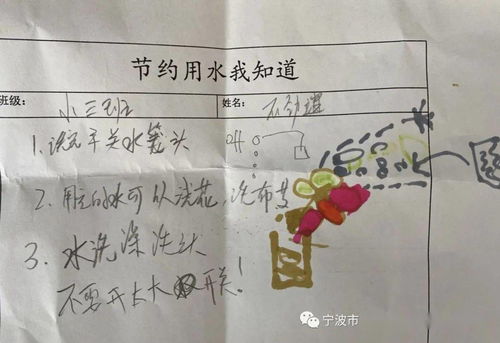 节约用水我知道
班级： 小三班 姓名：
1.洗完手关水笼头 off
2.用过的水可以浇花，洗布
3.水洗澡洗头
不要开太大开关！
宁波市